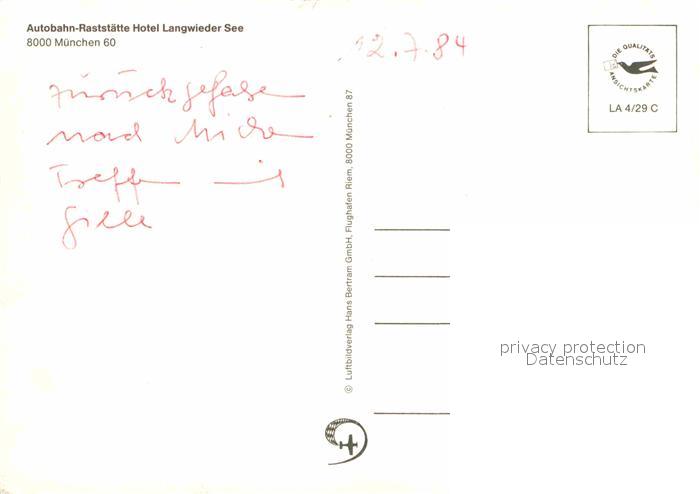 Autobahn-Raststätte Hotel Langwieder See
8000 München 60
12.7.84
zurückgefahren
nach
Treffen mit
DIE QUALITÄTS
ANSICHTSKARTE
LA 4/29 C
© Luftbildverlag Hans Bertram GmbH, Flughafen Riem, 8000 München 87
privacy protection
Datenschutz